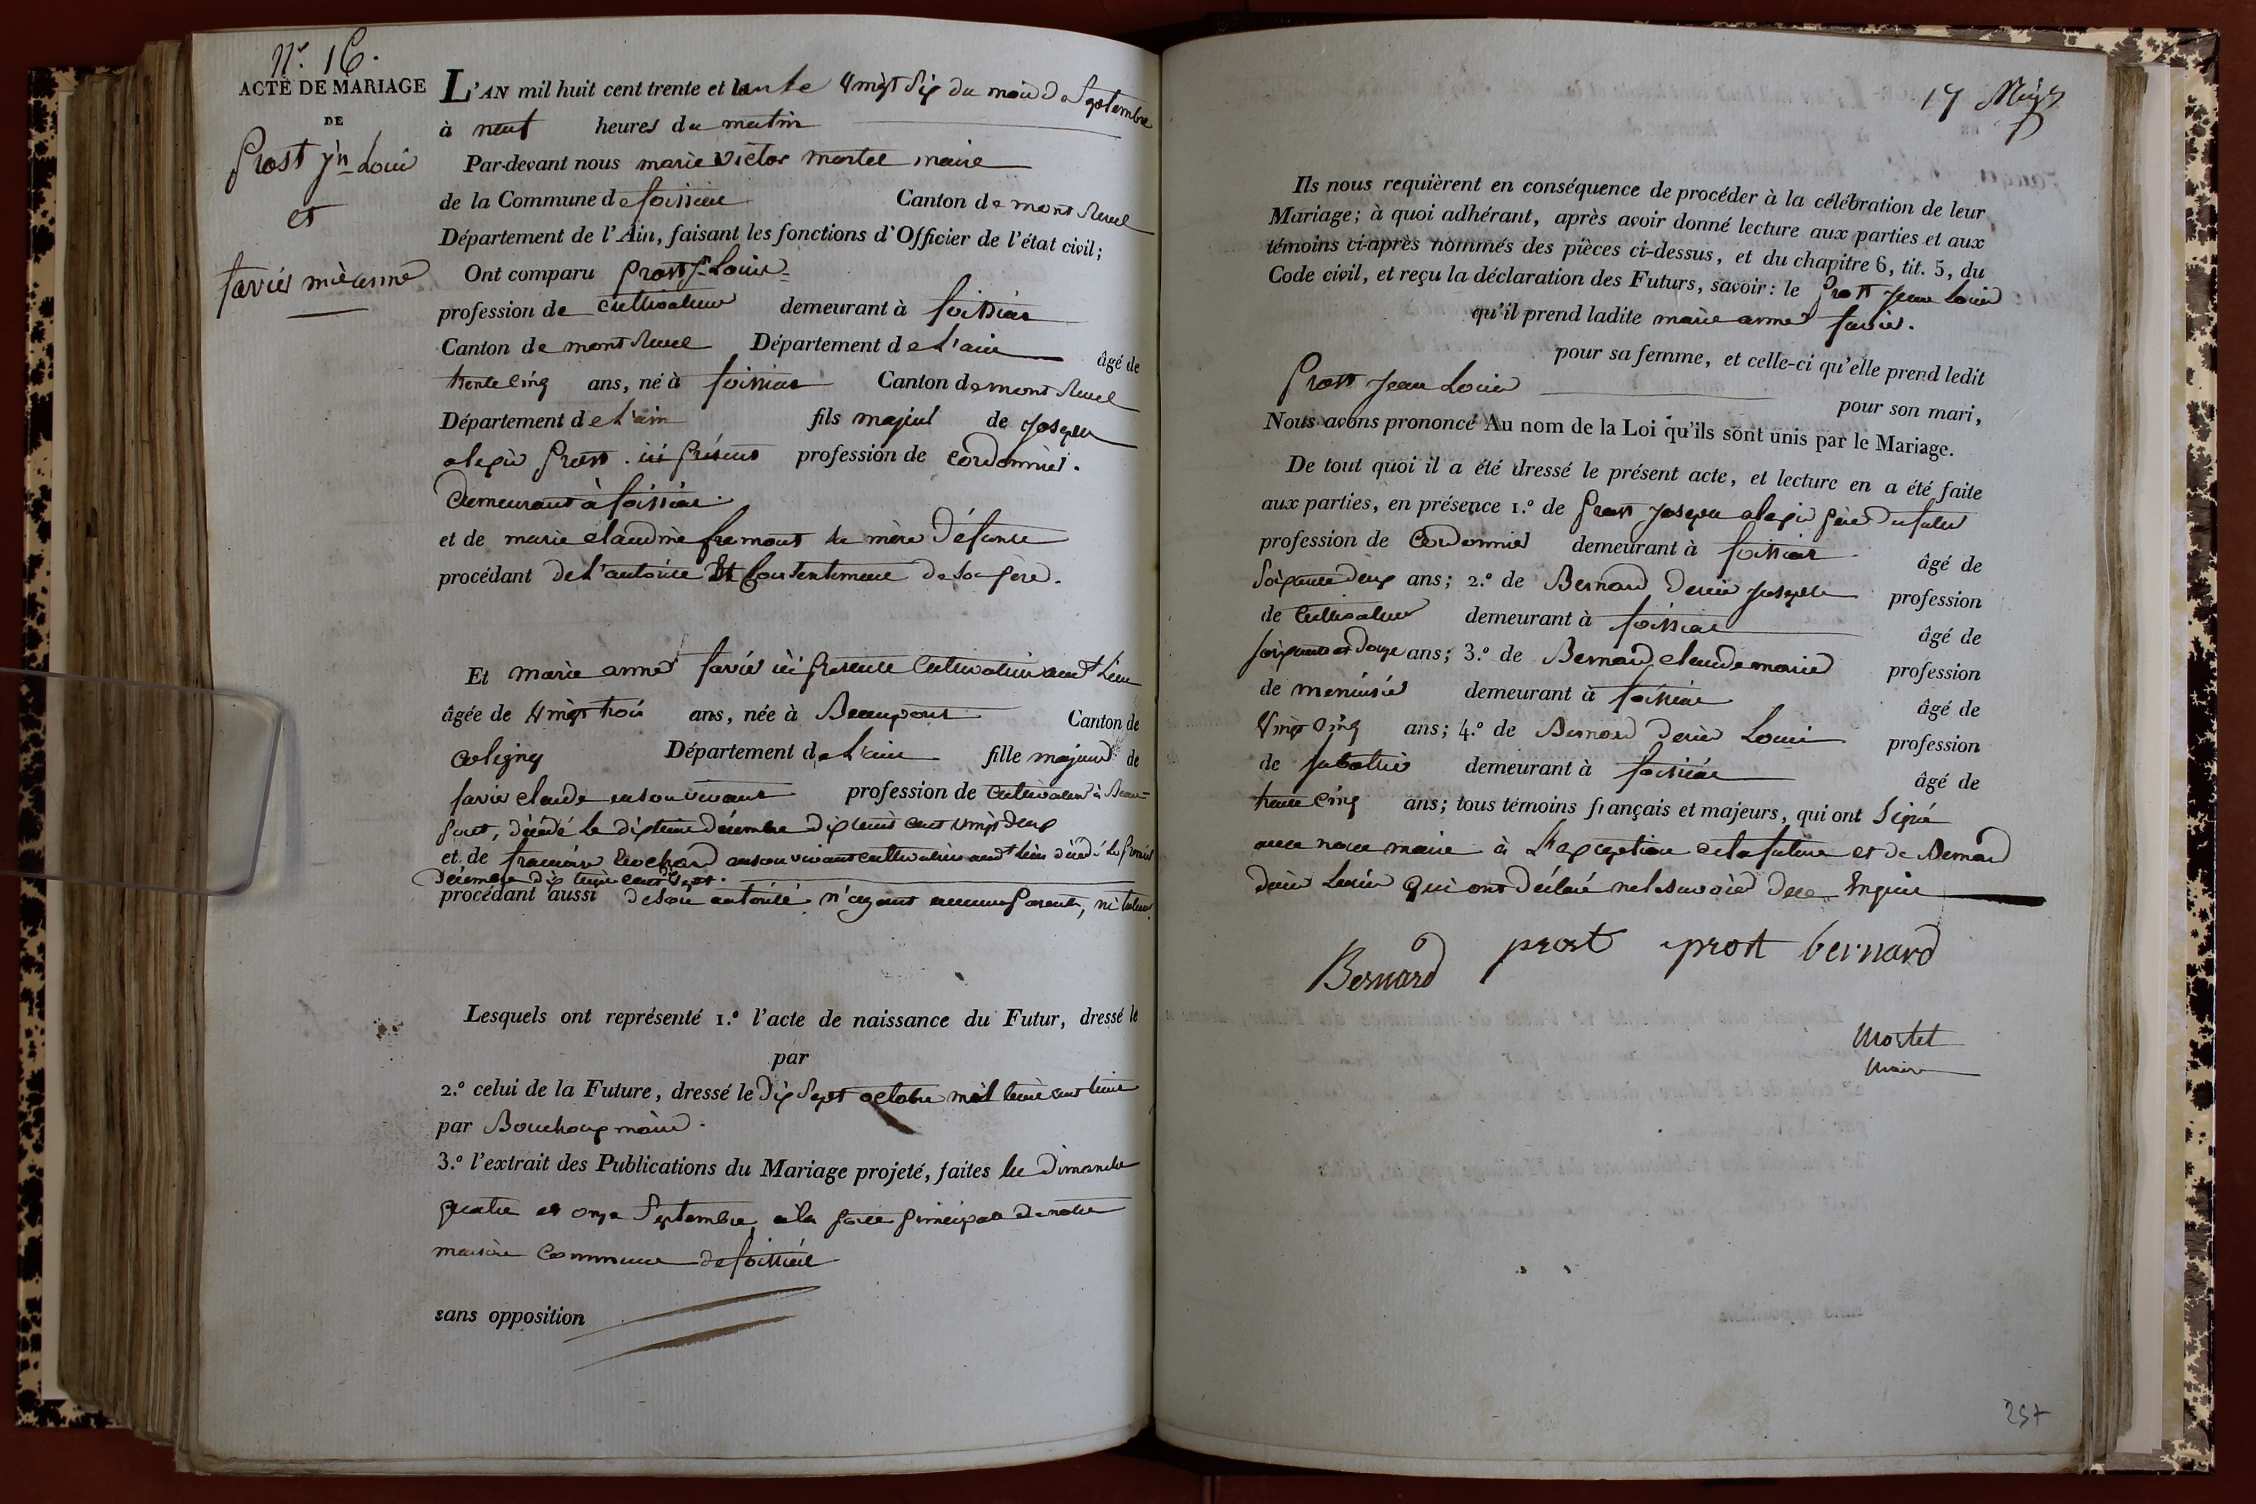 N.° 16.
ACTE DE MARIAGE
DE
Prost jn Louis
et
favier mie anne
L'AN mil huit cent trente et un le vingt six du mois de Septembre
à neuf heures du matin
Par-devant nous marie victor mortel maire
de la Commune de foissiat Canton de mont Revel
Département de l'Ain, faisant les fonctions d'Officier de l'état civil;
Ont comparu Prost jn Louis
profession de cultivateur demeurant à foissiat
Canton de mont Revel Département de l'ain âgé de
trente cinq ans, né à foissiat Canton de mont Revel
Département de l'ain fils majeur de joseph
alexis Prost ici présent profession de cordonnier.
demeurant à foissiat.
et de marie claudine fremont sa mère défunte
procédant de l'autorité et consentement de son père.
Et marie anne favier ici présente cultivatrice audt lieu
âgée de vingt trois ans, née à Beaupont Canton de
coligny Département de l'ain fille majeure de
favier claude en son vivant profession de cultivateur à Beau-
pont, décédé le dix décembre dix huit cent vingt deux
et de françoise Rochard en son vivant cultivatrice audt lieu décédée le
décembre dix huit cent sept.
procédant aussi de son autorité n'ayant aucuns parents, ni tuteur.
Lesquels ont représenté 1.° l'acte de naissance du Futur, dressé le
par
2.° celui de la Future, dressé le dix sept octobre mil huit cent huit
par Bouchoux maire.
3.° l'extrait des Publications du Mariage projeté, faites les dimanche
quatre et onze Septembre, à la porte principale de notre
maison commune de foissiat
sans opposition
17
Ils nous requièrent en conséquence de procéder à la célébration de leur
Mariage; à quoi adhérant, après avoir donné lecture aux parties et aux
témoins ci-après nommés des pièces ci-dessus, et du chapitre 6, tit. 5, du
Code civil, et reçu la déclaration des Futurs, savoir: le Prost jean Louis
qu'il prend ladite marie anne favier.
pour sa femme, et celle-ci qu'elle prend ledit
Prost jean Louis pour son mari,
Nous avons prononcé Au nom de la Loi qu'ils sont unis par le Mariage.
De tout quoi il a été dressé le présent acte, et lecture en a été faite
aux parties, en présence 1.° de Prost joseph alexis père du futur
profession de cordonnier demeurant à foissiat âgé de
soixante deux ans; 2.° de Bernard denis joseph profession
de cultivateur demeurant à foissiat âgé de
soixante et douze ans; 3.° de Bernard claude marie profession
de menuisier demeurant à foissiat âgé de
vingt cinq ans; 4.° de Bernard denis Louis profession
de sabotier demeurant à foissiat âgé de
trente cinq ans; tous témoins français et majeurs, qui ont signé
avec nous maire à l'exception de la future et de Bernard
denis Louis qui ont déclaré ne le savoir de ce enquis
Bernard prost prost bernard
Mortel
Maire
257